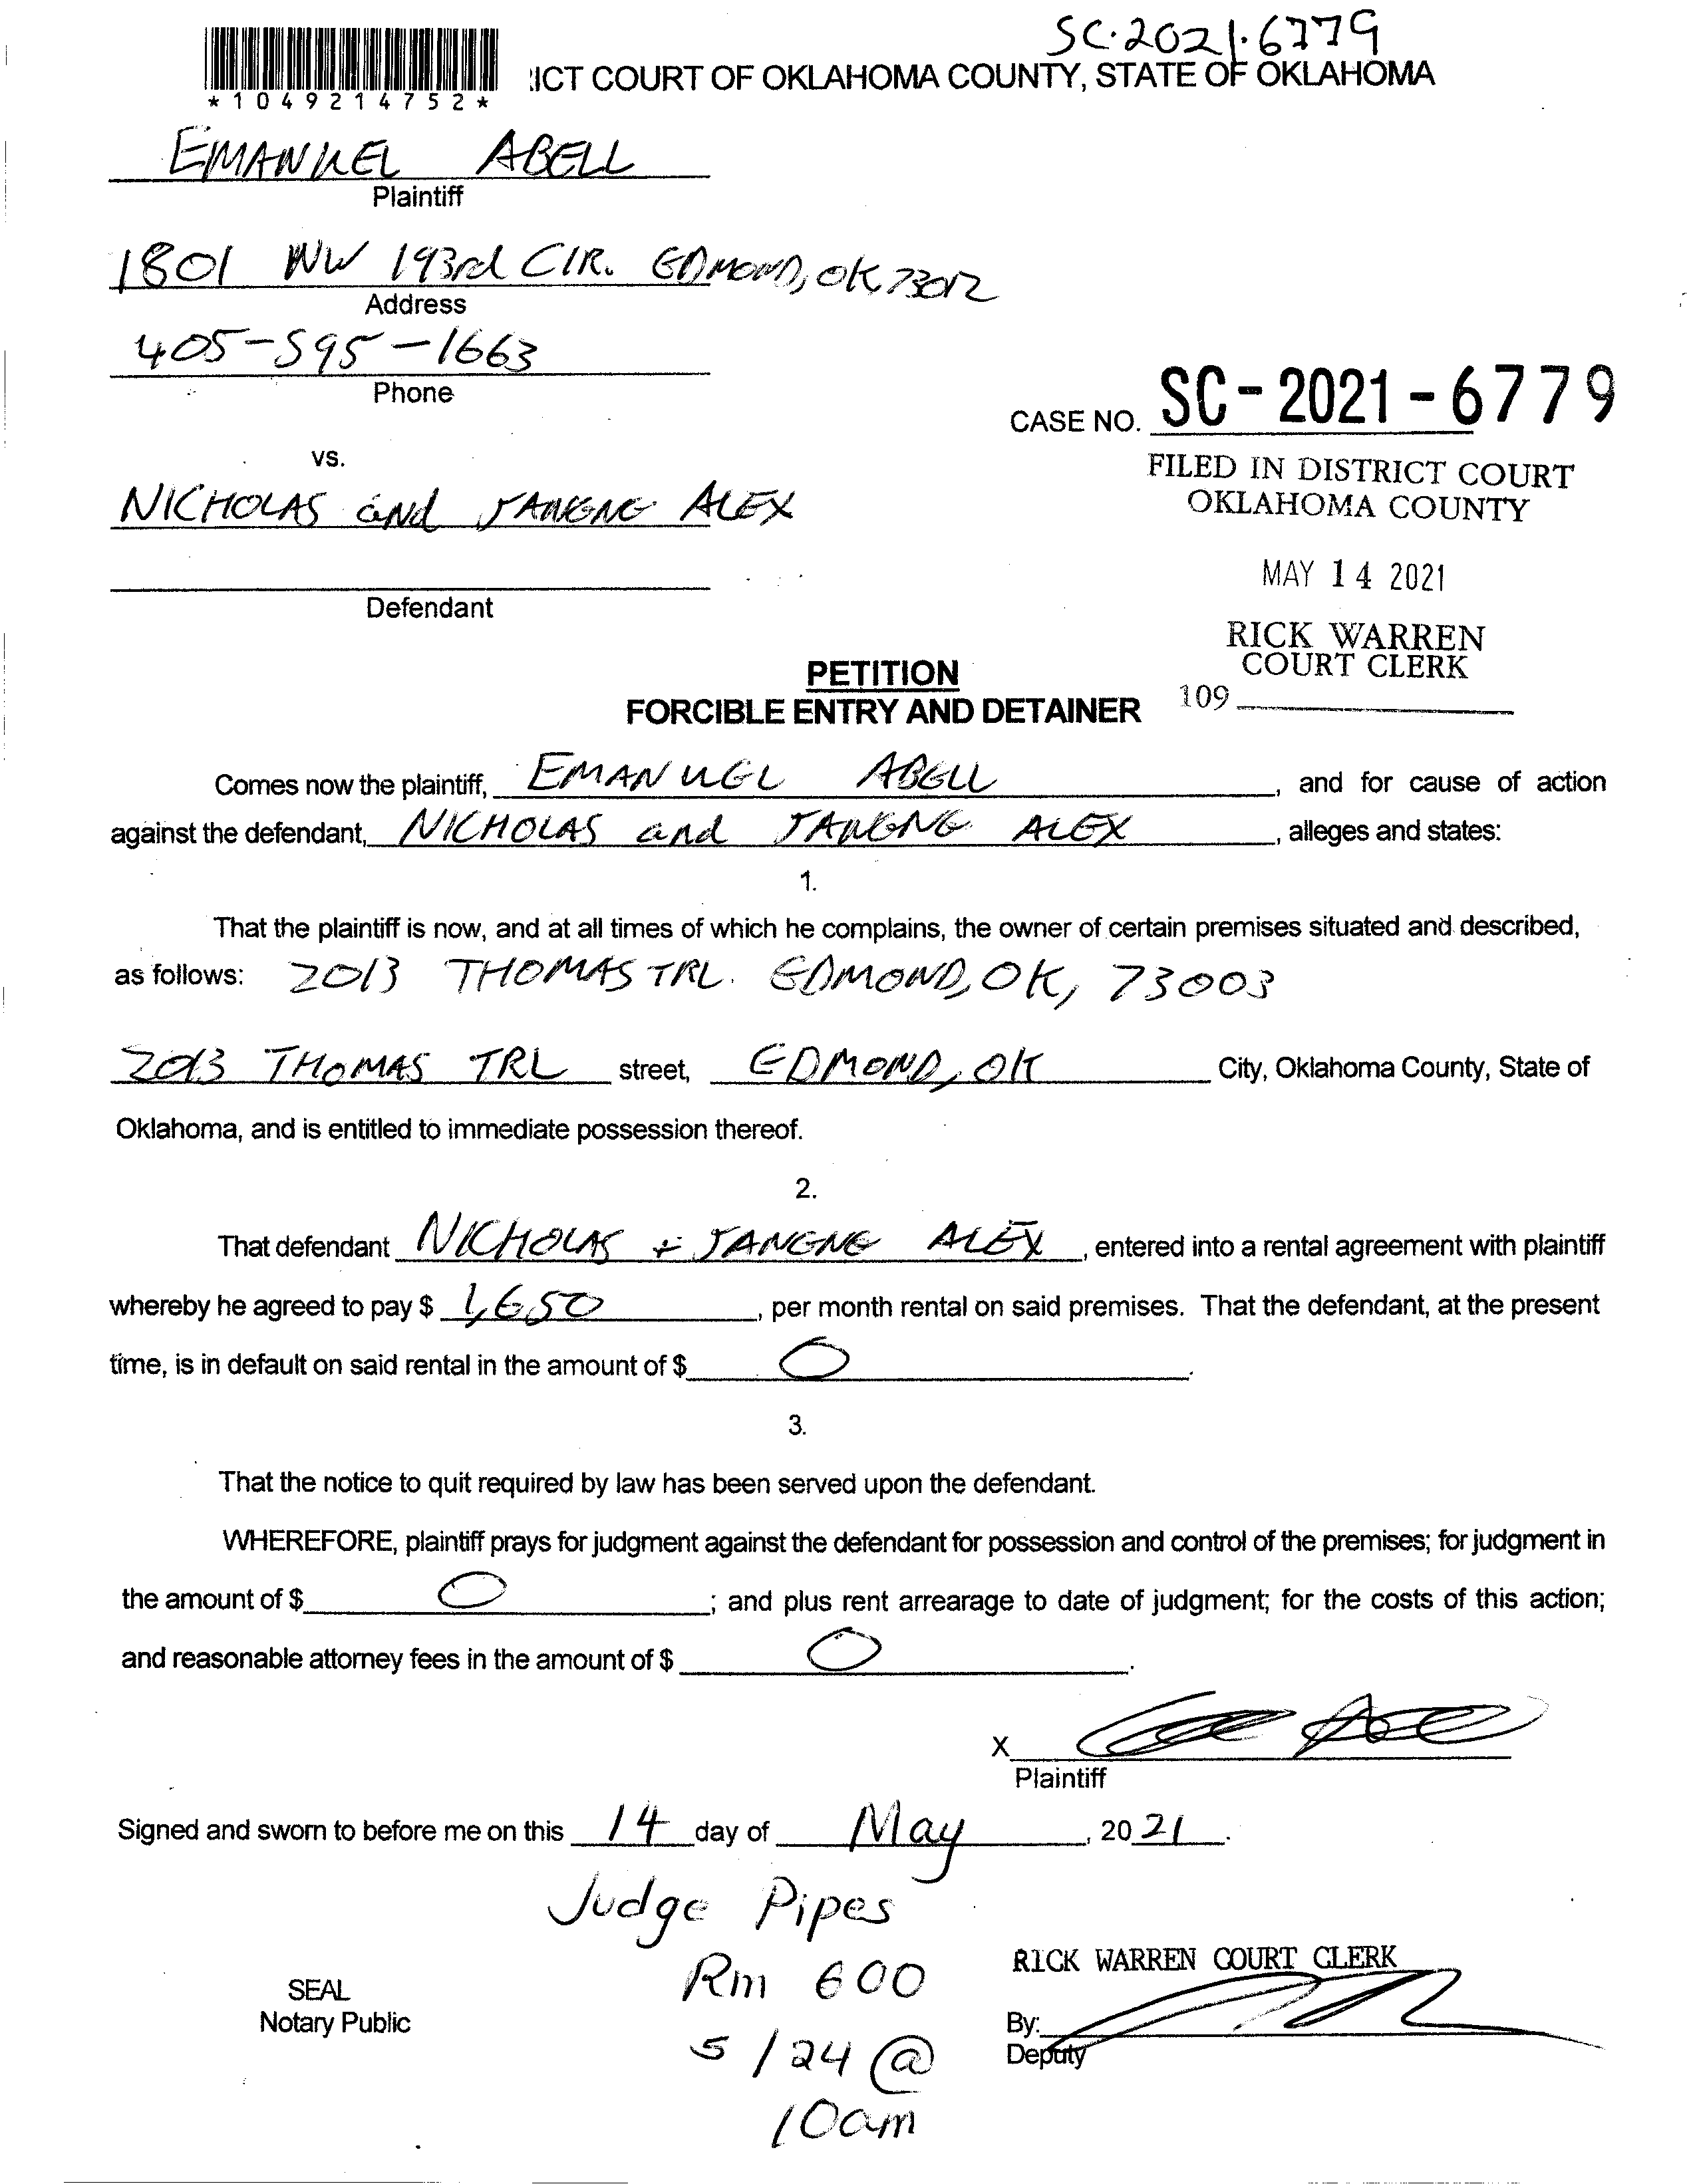 SC-2021-6779
ICT COURT OF OKLAHOMA COUNTY, STATE OF OKLAHOMA
*1049214752*
EMANUEL ABELL
Plaintiff
1801 NW 193rd CIR. EDMOND, OK 73012
Address
405-595-1663
Phone
CASE NO. SC-2021-6779
vs.
FILED IN DISTRICT COURT
OKLAHOMA COUNTY
NICHOLAS and JANENE ALEX
MAY 14 2021
Defendant
RICK WARREN
COURT CLERK
109
PETITION
FORCIBLE ENTRY AND DETAINER
Comes now the plaintiff, EMANUEL ABELL, and for cause of action
against the defendant, NICHOLAS and JANENE ALEX, alleges and states:
1.
That the plaintiff is now, and at all times of which he complains, the owner of certain premises situated and described,
as follows: 2013 THOMAS TRL. EDMOND, OK, 73003
2013 THOMAS TRL street, EDMOND, OK City, Oklahoma County, State of
Oklahoma, and is entitled to immediate possession thereof.
2.
That defendant NICHOLAS + JANENE ALEX, entered into a rental agreement with plaintiff
whereby he agreed to pay $ 1,650, per month rental on said premises. That the defendant, at the present
time, is in default on said rental in the amount of $ 0.
3.
That the notice to quit required by law has been served upon the defendant.
WHEREFORE, plaintiff prays for judgment against the defendant for possession and control of the premises; for judgment in
the amount of $ 0; and plus rent arrearage to date of judgment; for the costs of this action;
and reasonable attorney fees in the amount of $ 0.
X
Plaintiff
Signed and sworn to before me on this 14 day of May, 2021.
Judge Pipes
Rm 600
5/24 @
10am
SEAL
Notary Public
RICK WARREN COURT CLERK
By:
Deputy